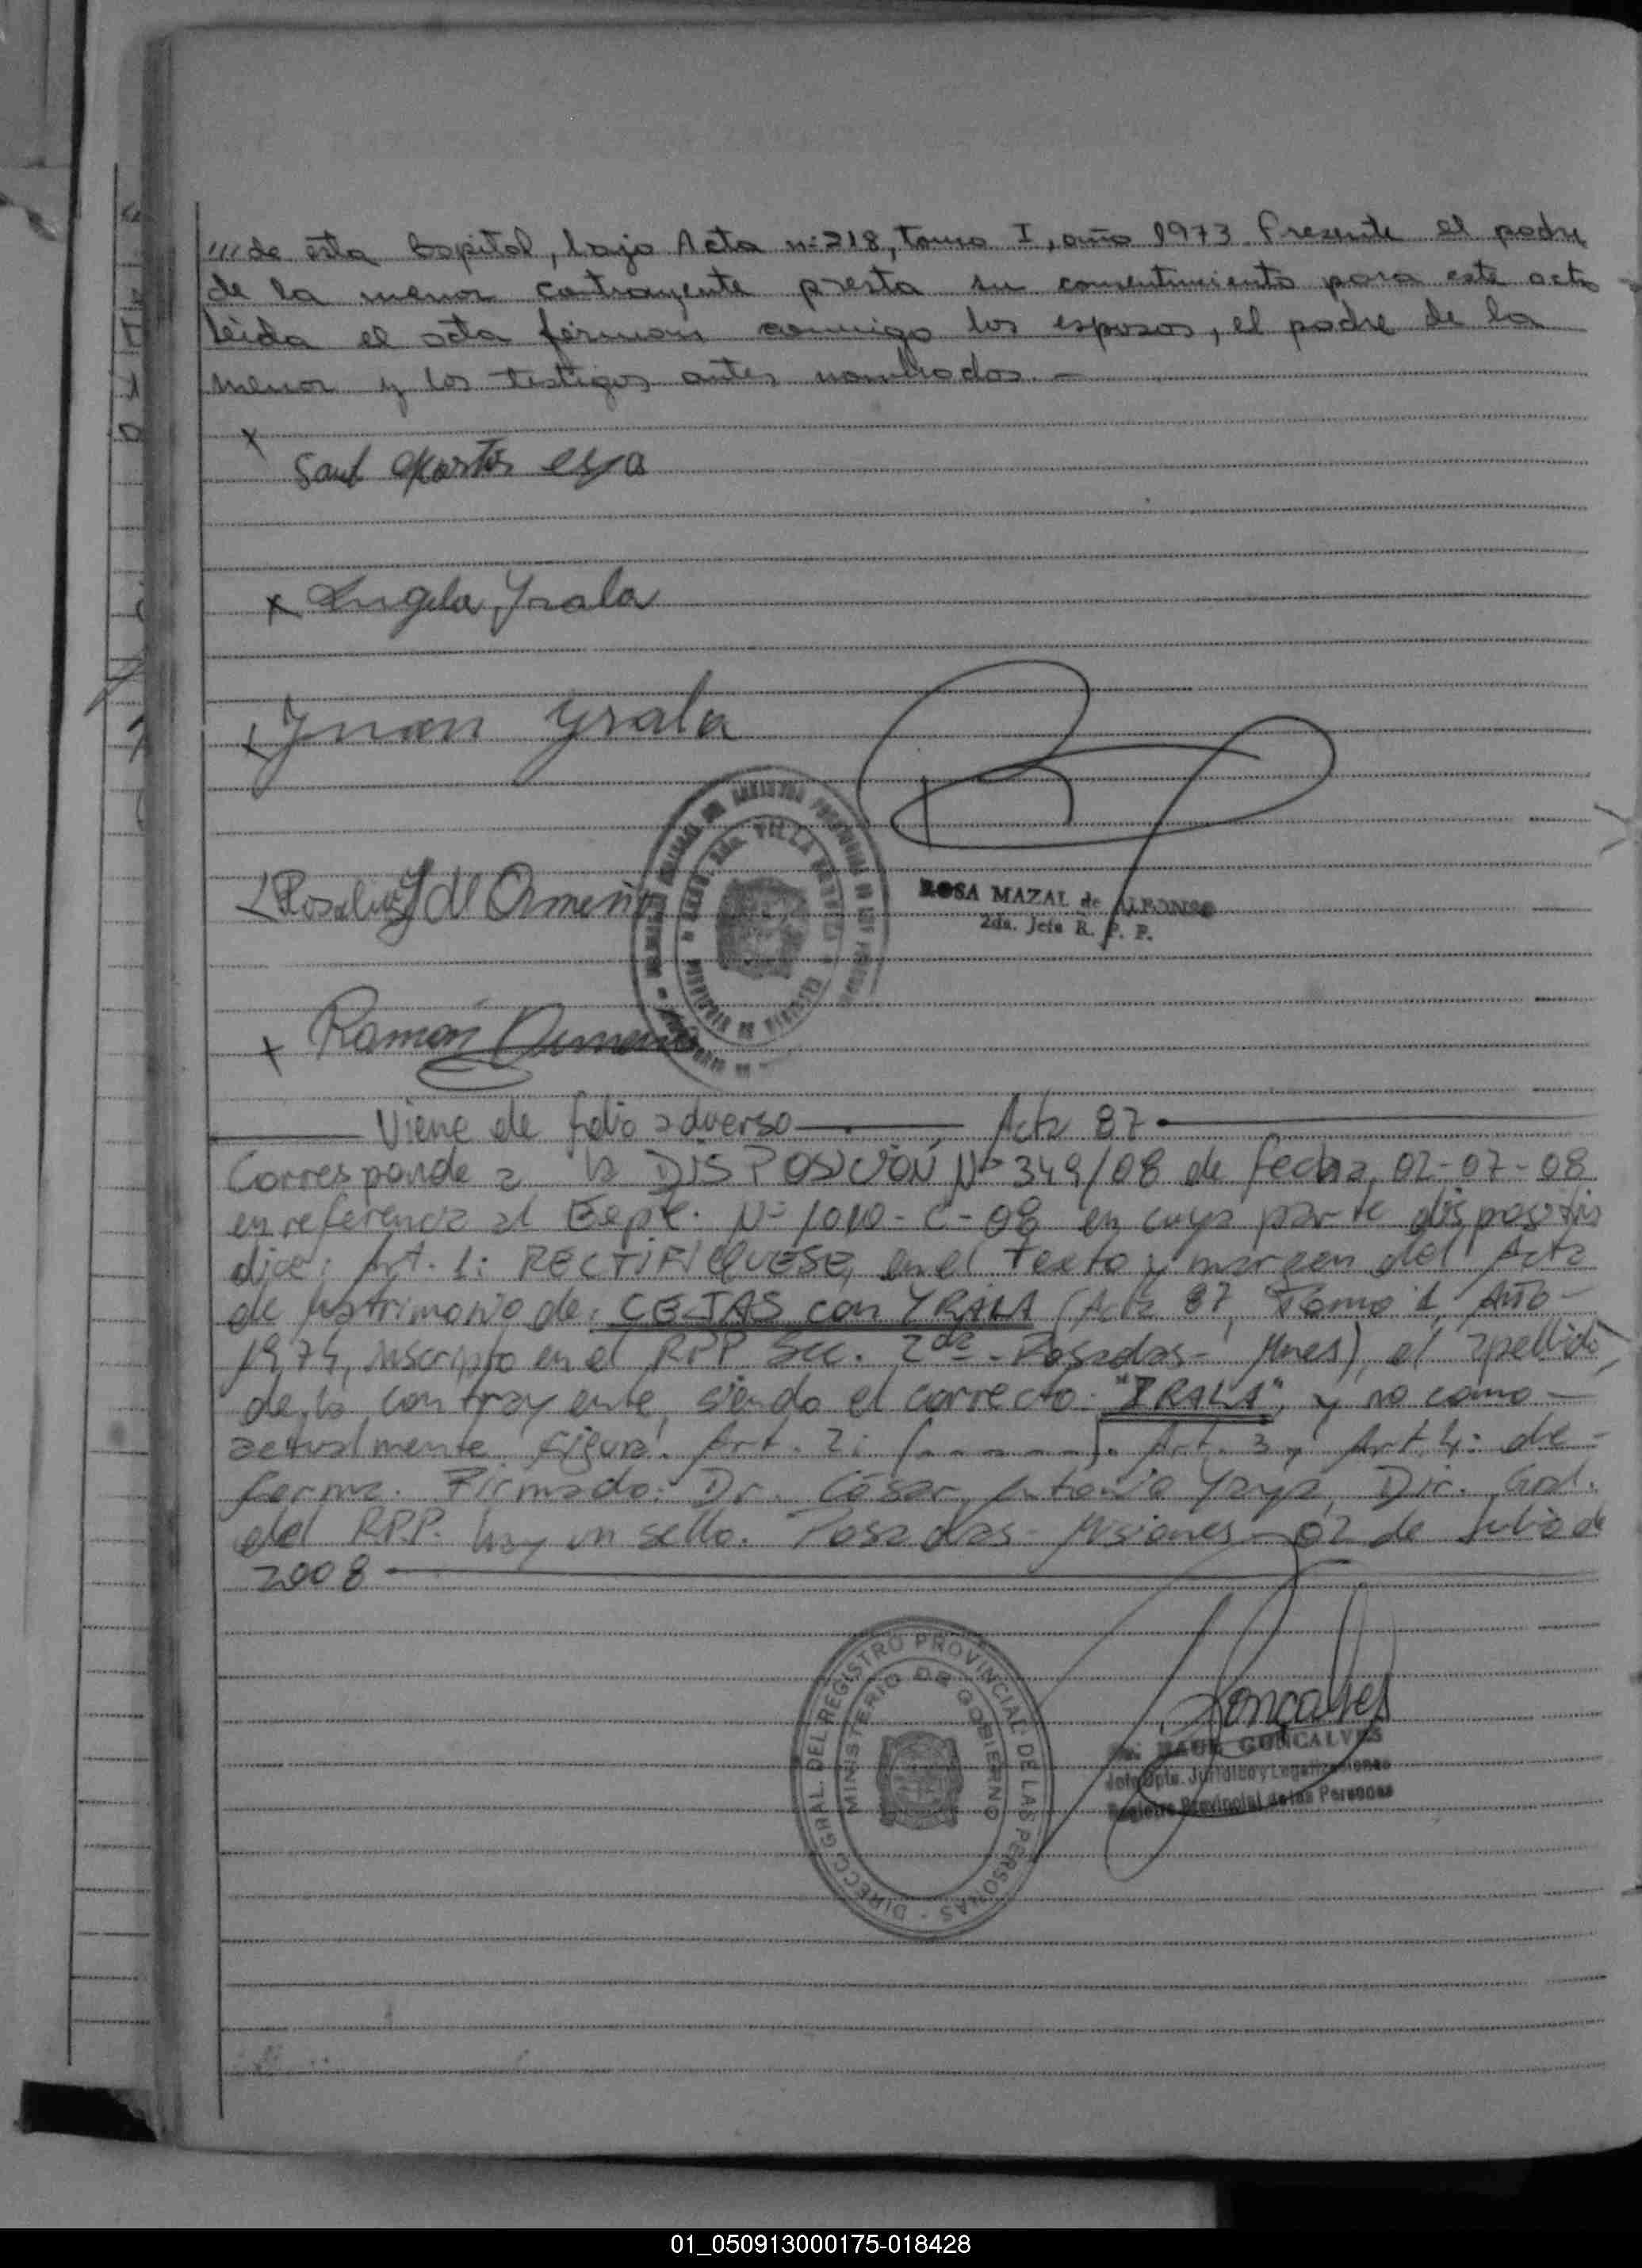 ///de esta Capital, bajo Acta nº 218, tomo I, año 1973. Presente el padre
de la menor contrayente presta su consentimiento para este acto
leída el acta firman conmigo los esposos, el padre de la
menor y los testigos antes nombrados. —
x
Saul
x Angela Yrala
x Juan Yrala
ROSA MAZAL de ALFONSO
2da. Jefa R. P. P.
x Ramón
Viene de folio adverso — Acta 87
Corresponde a la DISPOSICIÓN Nº 349/08 de fecha 02-07-08
en referencia al Expte. Nº 1010-C-08 en cuya parte dispositiva
dice: Art. 1: RECTIFIQUESE, en el texto y margen del Acta
de Matrimonio de: CEJAS con YRALA (Acta 87, Tomo 1, Año-
1974, inscripto en el RPP Secc. 2da - Posadas - Mnes), el apellido
de la contrayente, siendo el correcto: "IRALA", y no como —
actualmente figura. Art. 2: (- - - - -). Art. 3 y Art. 4: de -
forma. Firmado: Dr. César Antonio Dir. Gral.
del RPP. hay un sello. Posadas - Misiones - 02 de Julio de
2008
DIRECC. GRAL. DEL REGISTRO PROVINCIAL DE LAS PERSONAS -
MINISTERIO DE GOBIERNO
Goncalves
RAUL GONCALVES
Jefe Dpto. Jurídico y Legalizaciones
Registro Provincial de las Personas
01_050913000175-018428